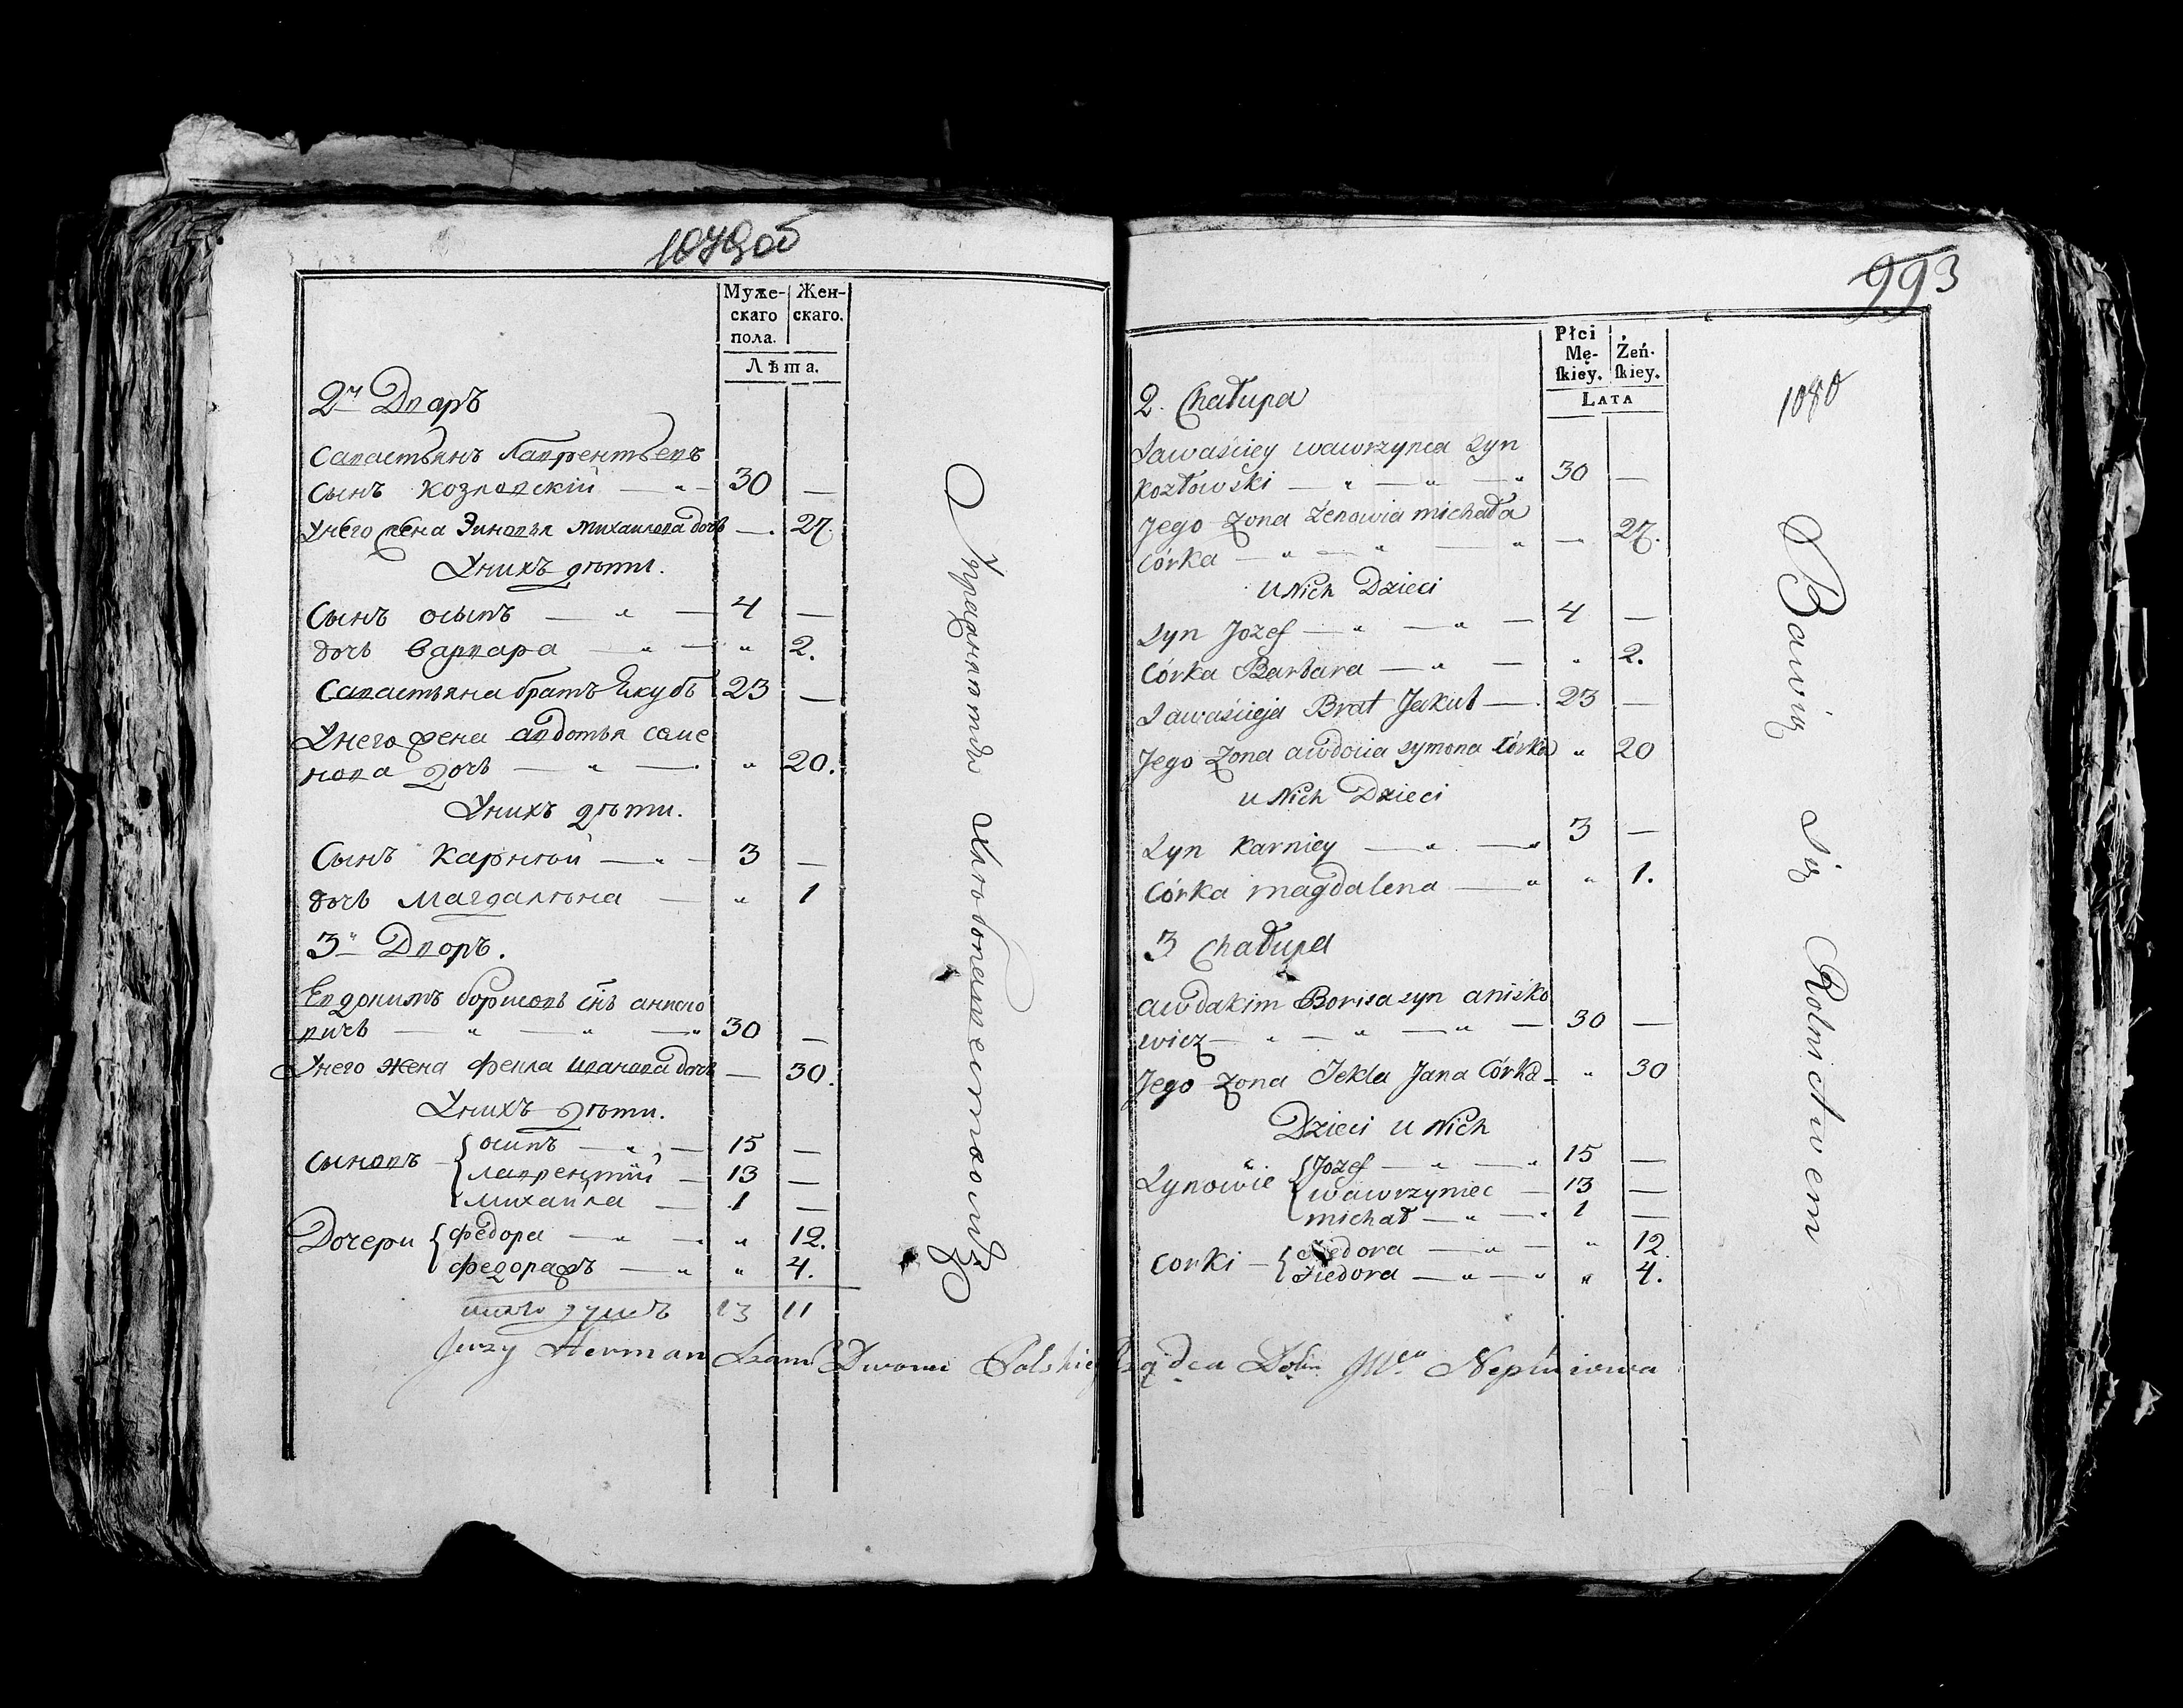 1079об
Муже-
скаго
пола.
Жен-
скаго.
Лѣта.
2й Дворъ
Савастьянъ Лаврентьевъ
Сынъ Козловскiй — „ — 30 —
Унего жена Зиновья Михаилова дочь — 27.
Унихъ дѣти.
Сынъ осыпъ — „ — 4 —
дочь варвара — „ — „ 2.
Савастьяна братъ Якубъ 23 —
Унего жена авдотья семе
нова дочь — „ — „ 20.
Унихъ дѣти.
Сынъ Карнѣй — „ — 3 —
дочь Магдалѣна — „ 1
3й Дворъ.
Евдокимъ борисовъ снъ аниско
вичъ — „ — „ — „ 30 —
Унего жена Фекла иванова дочь — 30.
Унихъ дѣти.
Сыновъ
осипъ — „ — 15 —
лаврентiй — 13 —
Михайла — 1 —
Дочери
федора — „ — „ 12.
федора жъ — „ „ 4.
итого душъ 13 11
Упражняются хлебопашествомъ
Jerzy Herman Szam Dworu Polskie Rządca Dobr JWo Nepluiewa
993
1080
Płci
Mę-
skiey.
Żeń-
skiey.
LATA
2. Chałupa
Sawaściey wawrzynca Syn
Kozłowski — „ — „ — „ 30 —
Jego Zona Zenowia michała
Córka — „ — „ — „ — 27.
U Nich Dzieci
Syn Jozef — „ — „ — 4 —
Córka Barbara — „ — „ 2.
Sawaścieja Brat Jakub — 23 —
Jego Zona awdocia Symona Córka „ 20
U Nich Dzieci
Syn Karniey — „ — „ 3 —
Córka magdalena — „ „ 1.
3 Chałupa
awdakim Borisa syn anisko
wicz — „ — „ — „ — 30 —
Jego Zona Tekla Jana Córka — „ 30
Dzieci u Nich
Synowie
Jozef — „ — „ 15 —
wawrzyniec — 13 —
michał — „ — „ 1 —
Corki
Fiedora — „ — „ 12.
Fiedora — „ — „ „ 4.
Bawią się Rolnictwem